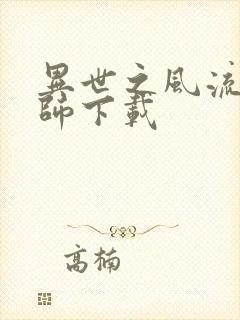 異世之風流
師下載
高楠